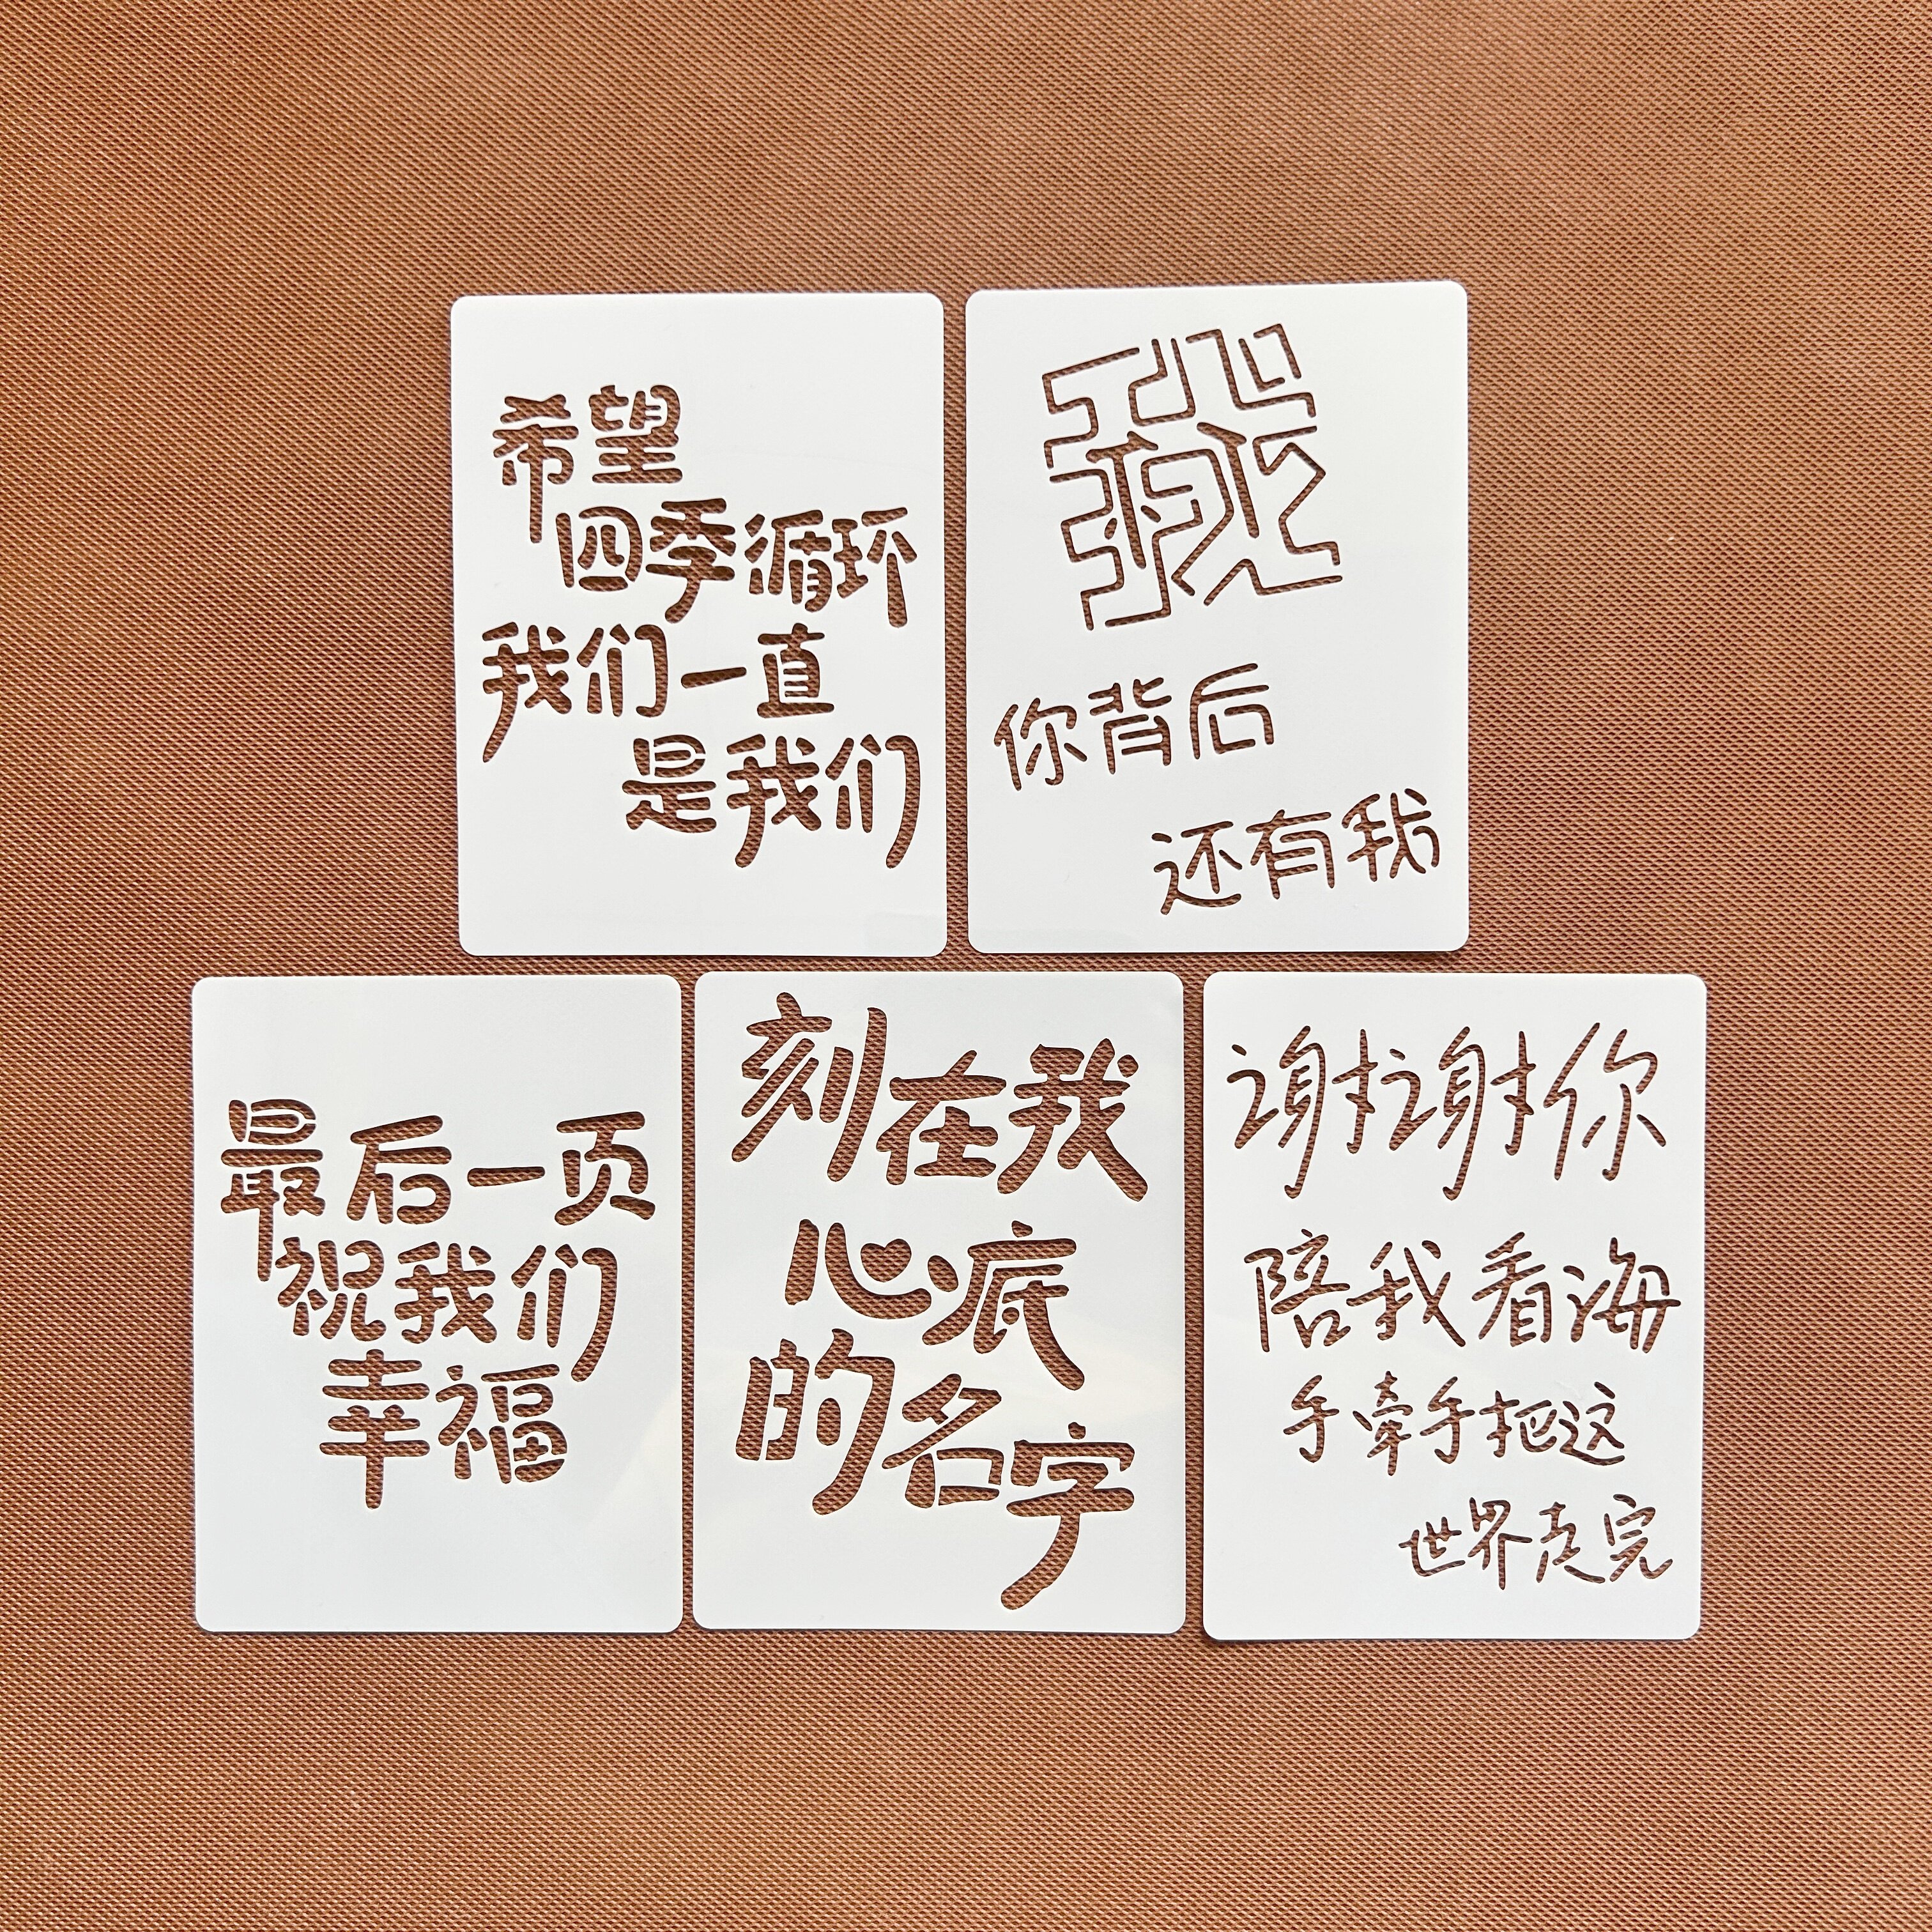 希望
四季循环
我们一直
是我们
我
你背后
还有我
最后一页
祝我们
幸福
刻在我
心底
的名字
谢谢你
陪我看海
手牵手把这
世界走完